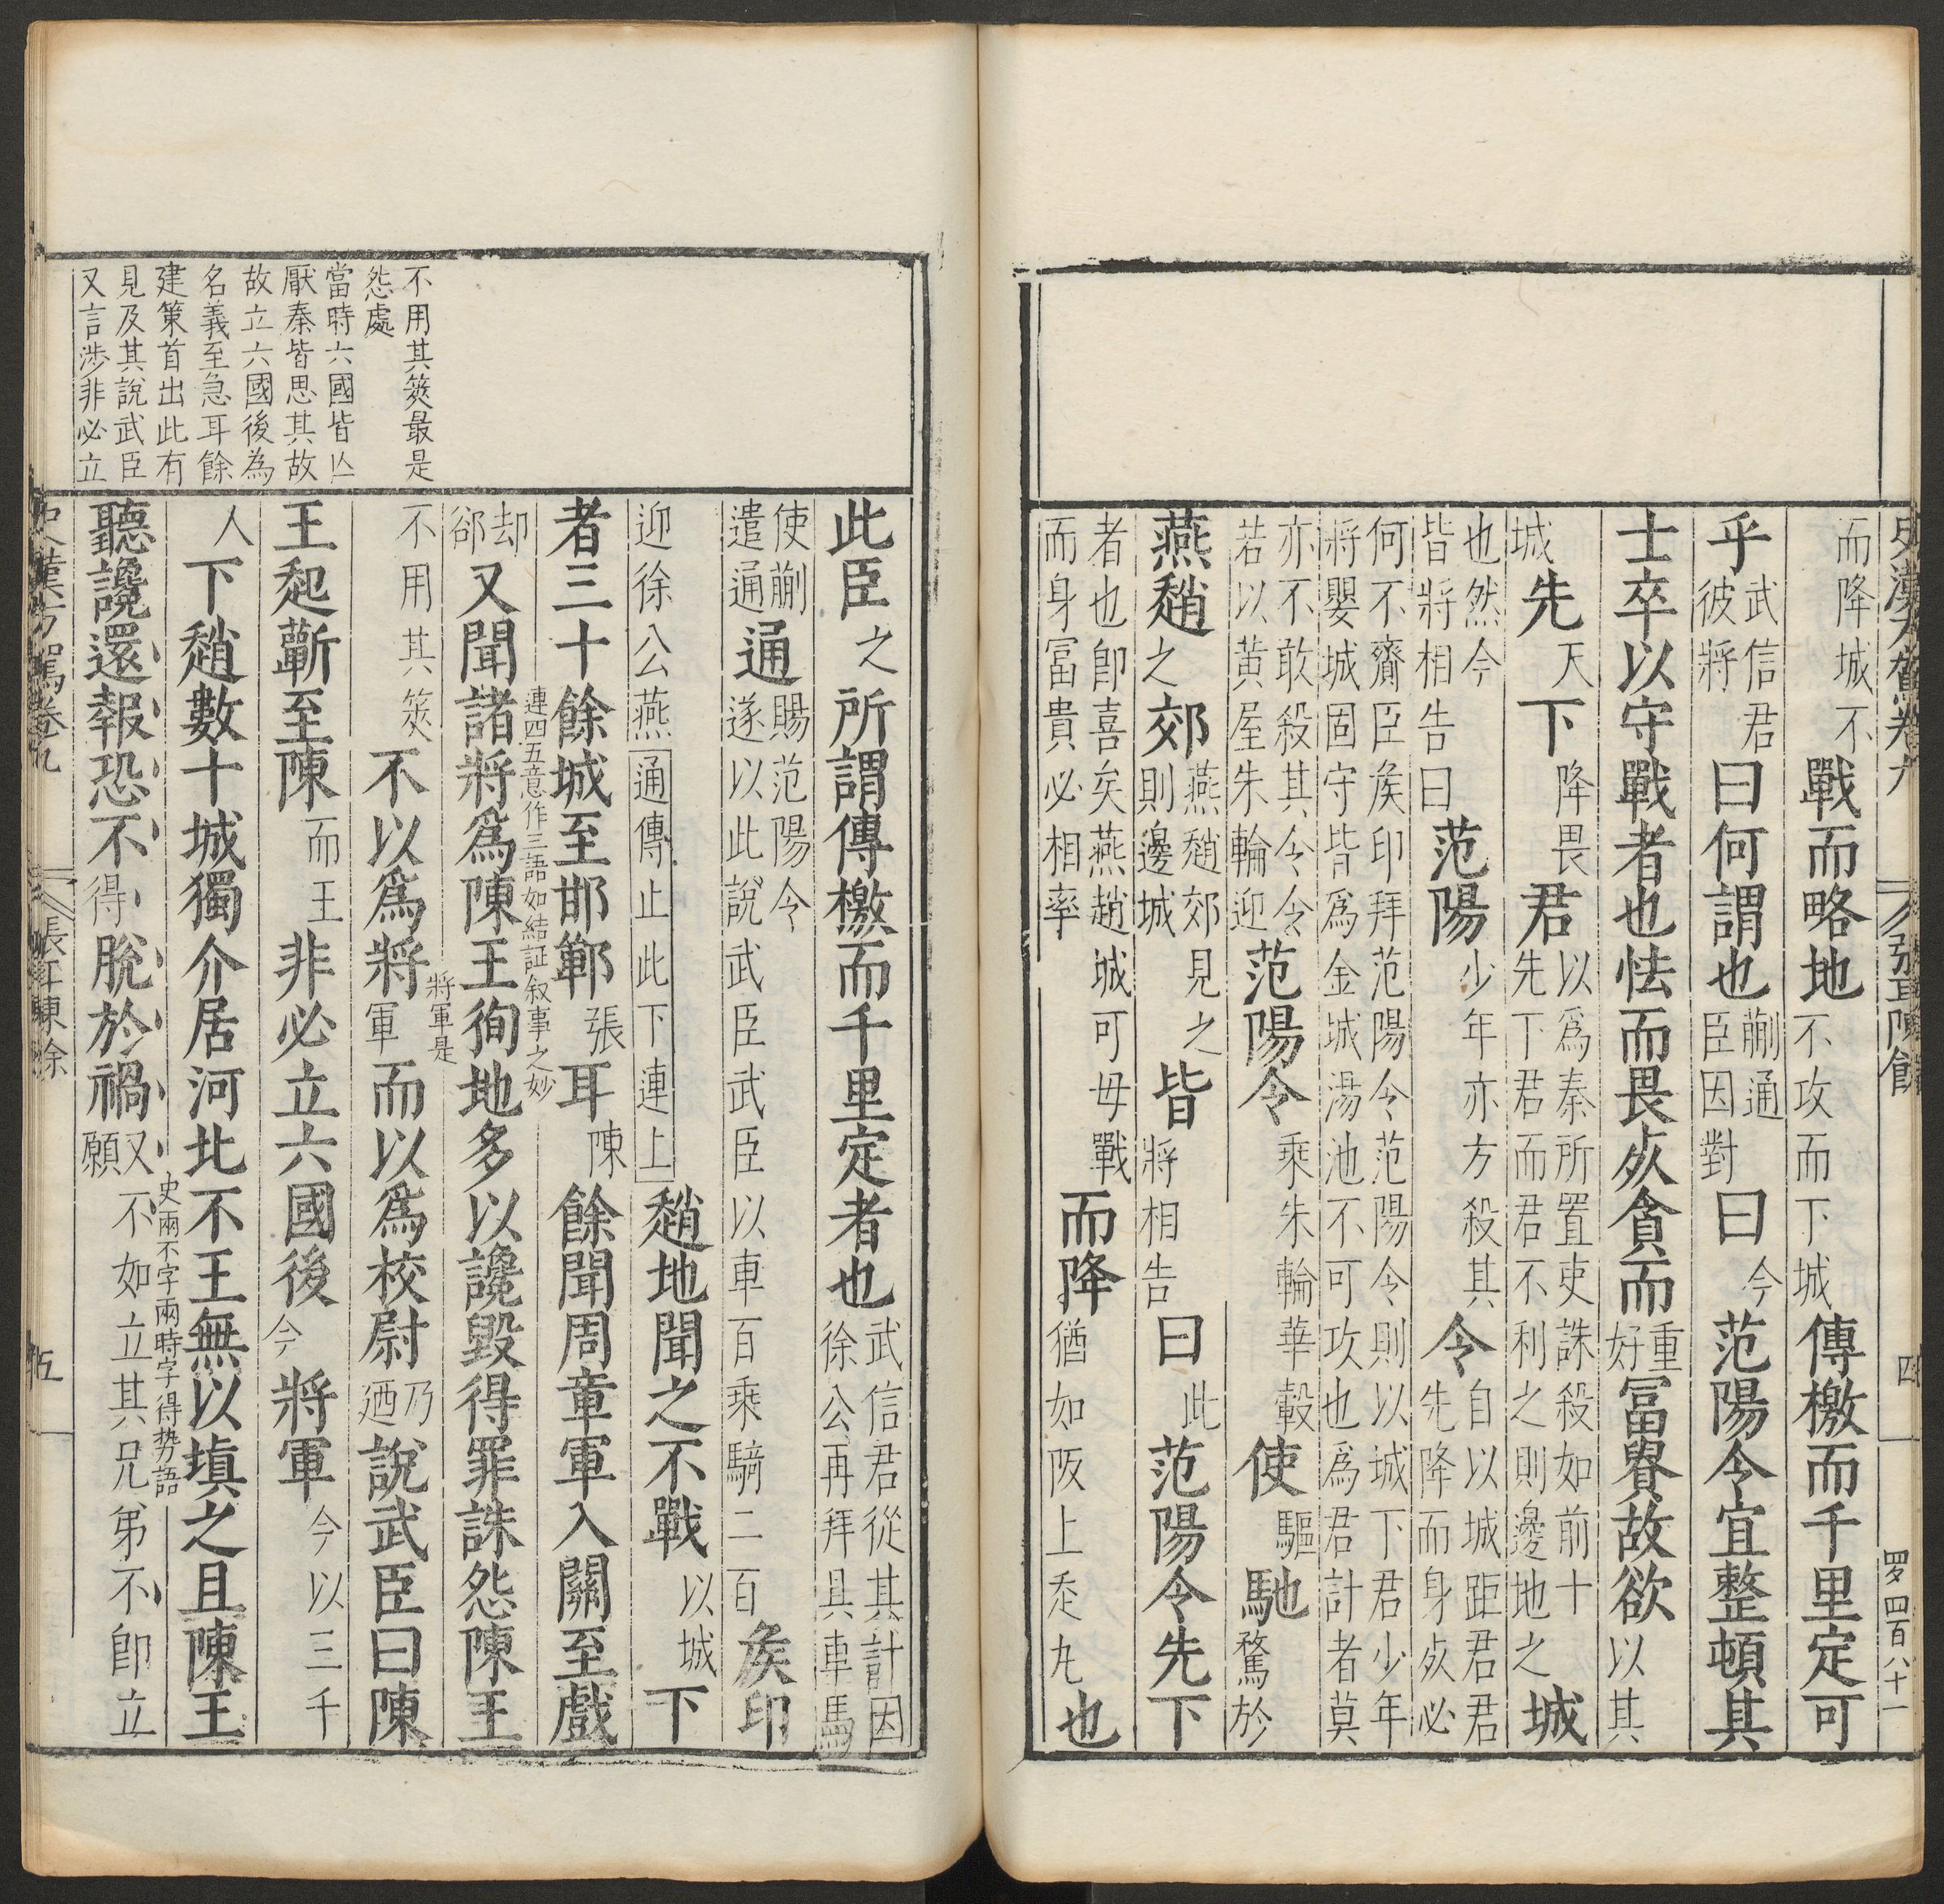 史漢方駕卷九 張耳陳餘 四 罗四百八十一
而降城不戰而略地不攻而下城傳檄而千里定可
乎武信君彼將曰何謂也蒯通臣因對曰今范陽令宜整頓其
士卒以守戰者也怯而畏死貪而重好冨貴故欲以其
城先天下降畏君以爲秦所置吏誅殺如前十先下君而君不利之則邊地之城
也然今皆將相告曰范陽少年亦方殺其令自以城距君君先降而身死必
何不齎臣矦印拜范陽令范陽令則以城下君少年將嬰城固守皆爲金城湯池不可攻也爲君計者莫
亦不敢殺其令令若以黃屋朱輪迎范陽令乘朱輪華轂使驅馳騖於
燕趙之郊燕趙郊則邊城見之皆將相告曰此范陽令先下
者也卽喜矣燕趙而身冨貴必相率城可毋戰而降猶如阪上走丸也
此臣之所謂傳檄而千里定者也武信君從其計因徐公再拜具車馬
使蒯遣通通賜范陽令遂以此說武臣武臣以車百乘騎二百矦印
迎徐公燕通傳止此下連上趙地聞之不戰以城下
者三十餘城至邯鄲張耳陳餘聞周章軍入關至戲
連四五意作三語如結証叙事之妙
却郤又聞諸將爲陳王徇地多以讒毀得罪誅怨陳王
將軍是
不用其筴不以爲將軍而以爲校尉乃迺說武臣曰陳
王起蘄至陳而王非必立六國後今將軍今以三千
人下趙數十城獨介居河北不王無以塡之且陳王
史兩不字兩時字得势語
聽讒還報恐不得脫於禍又願不如立其兄弟不卽立
不用其筴最是
怨處
當時六國皆亾
厭秦皆思其故
故立六國後為
名義至急耳餘
建策首出此有
見及其說武臣
又言涉非必立
史漢方駕卷九 張耳陳餘 五